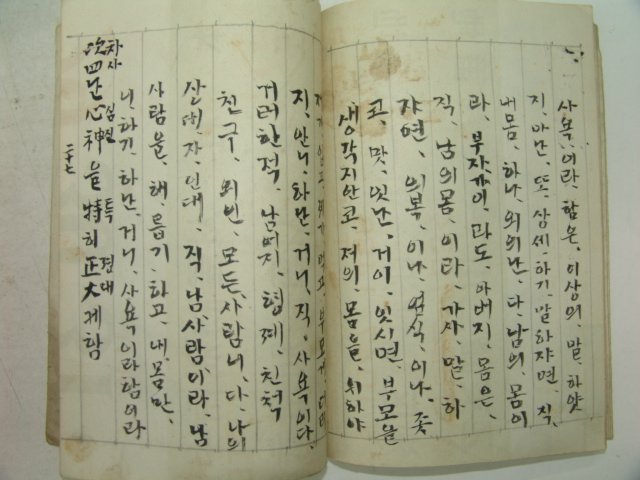 사욕, 이라, 함은, 이상의, 말, 하얏
지, 마난, 또, 상세, 하기, 말하자면, 직,
내몸, 하나, 외의난, 다, 남의, 몸이
라, 부자 과도, 아버지, 몸은,
직, 남의 몸, 이라, 가사, 말, 하
자면, 의복, 이나, 음식, 이나, 좃
고, 맛, 잇난, 거이, 잇시면, 부모을
생각지 안코, 저의, 몸을, 위하야
먹고, 부모게
지, 안니, 하난, 거니, 직, 사욕이다,
거러한적, 남어지, 형제, 친척
친구, 외인, 모든, 사람니, 다, 나의
상대자, 인대, 직, 남사람이라, 남
사람을, 해, 롭기, 하고, 내, 몸만,
니, 하기, 하난, 거니, 사욕이라함이라
次四난 心神을 特히 正大케함
차사 심신 특 정대
二十七